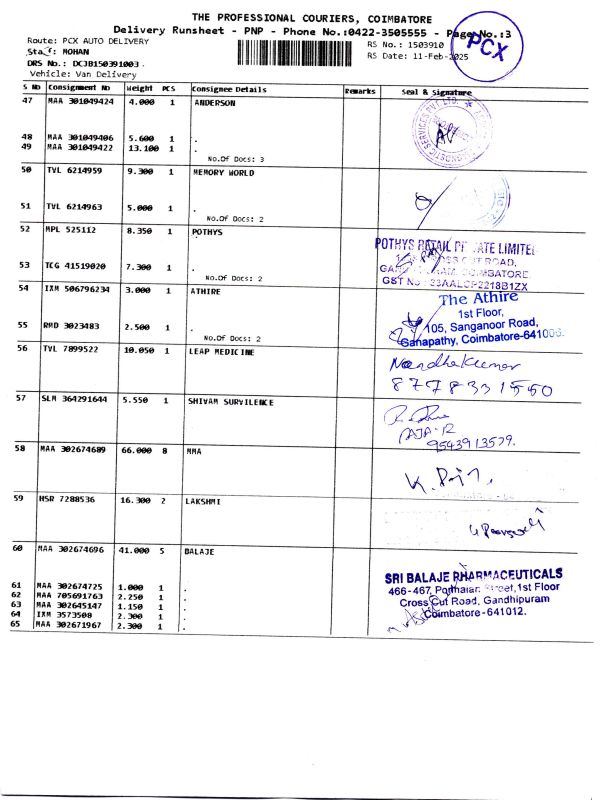 THE PROFESSIONAL COURIERS, COIMBATORE
Delivery Runsheet - PNP - Phone No.:0422-3505555 - Page No.:3
Route: PCX AUTO DELIVERY
RS No.: 1503910
PCX
Staff: MOHAN
RS Date: 11-Feb-2025
DRS No.: DCJB150391003
Vehicle: Van Delivery
S No Consignment No Weight PCS Consignee Details Remarks Seal & Signature
47 MAA 301049424 4.000 1 ANDERSON
48 MAA 301049406 5.600 1 .
49 MAA 301049422 13.100 1 .
No.Of Docs: 3
50 TVL 6214959 9.300 1 MEMORY WORLD
51 TVL 6214963 5.000 1 .
No.Of Docs: 2
52 MPL 525112 8.350 1 POTHYS
POTHYS RETAIL PRIVATE LIMITED
ROAD,
53 TCG 41519020 7.300 1 .
COIMBATORE
No.Of Docs: 2
GST No : 33AALCP2218B1ZX
54 IXM 506796234 3.000 1 ATHIRE
The Athire
1st Floor,
55 RMD 3023483 2.500 1 .
105, Sanganoor Road,
No.Of Docs: 2
Ganapathy, Coimbatore-641006.
56 TVL 7899522 10.050 1 LEAP MEDICINE
Nandhakumar
8778331550
57 SLM 364291644 5.550 1 SHIVAM SURVILENCE
RAJA-R
9543913579.
58 MAA 302674689 66.000 8 MMA
59 HSR 7288536 16.300 2 LAKSHMI
60 MAA 302674696 41.000 5 BALAJE
SRI BALAJE PHARMACEUTICALS
466-467, Street,1st Floor
61 MAA 302674725 1.000 1 .
62 MAA 705691763 2.250 1 .
Cross Cut Road, Gandhipuram
63 MAA 302645147 1.150 1 .
Coimbatore-641012.
64 IXM 3573508 2.300 1 .
65 MAA 302671967 2.300 1 .